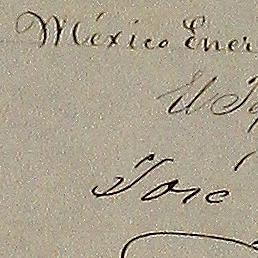 México Ener
El
José